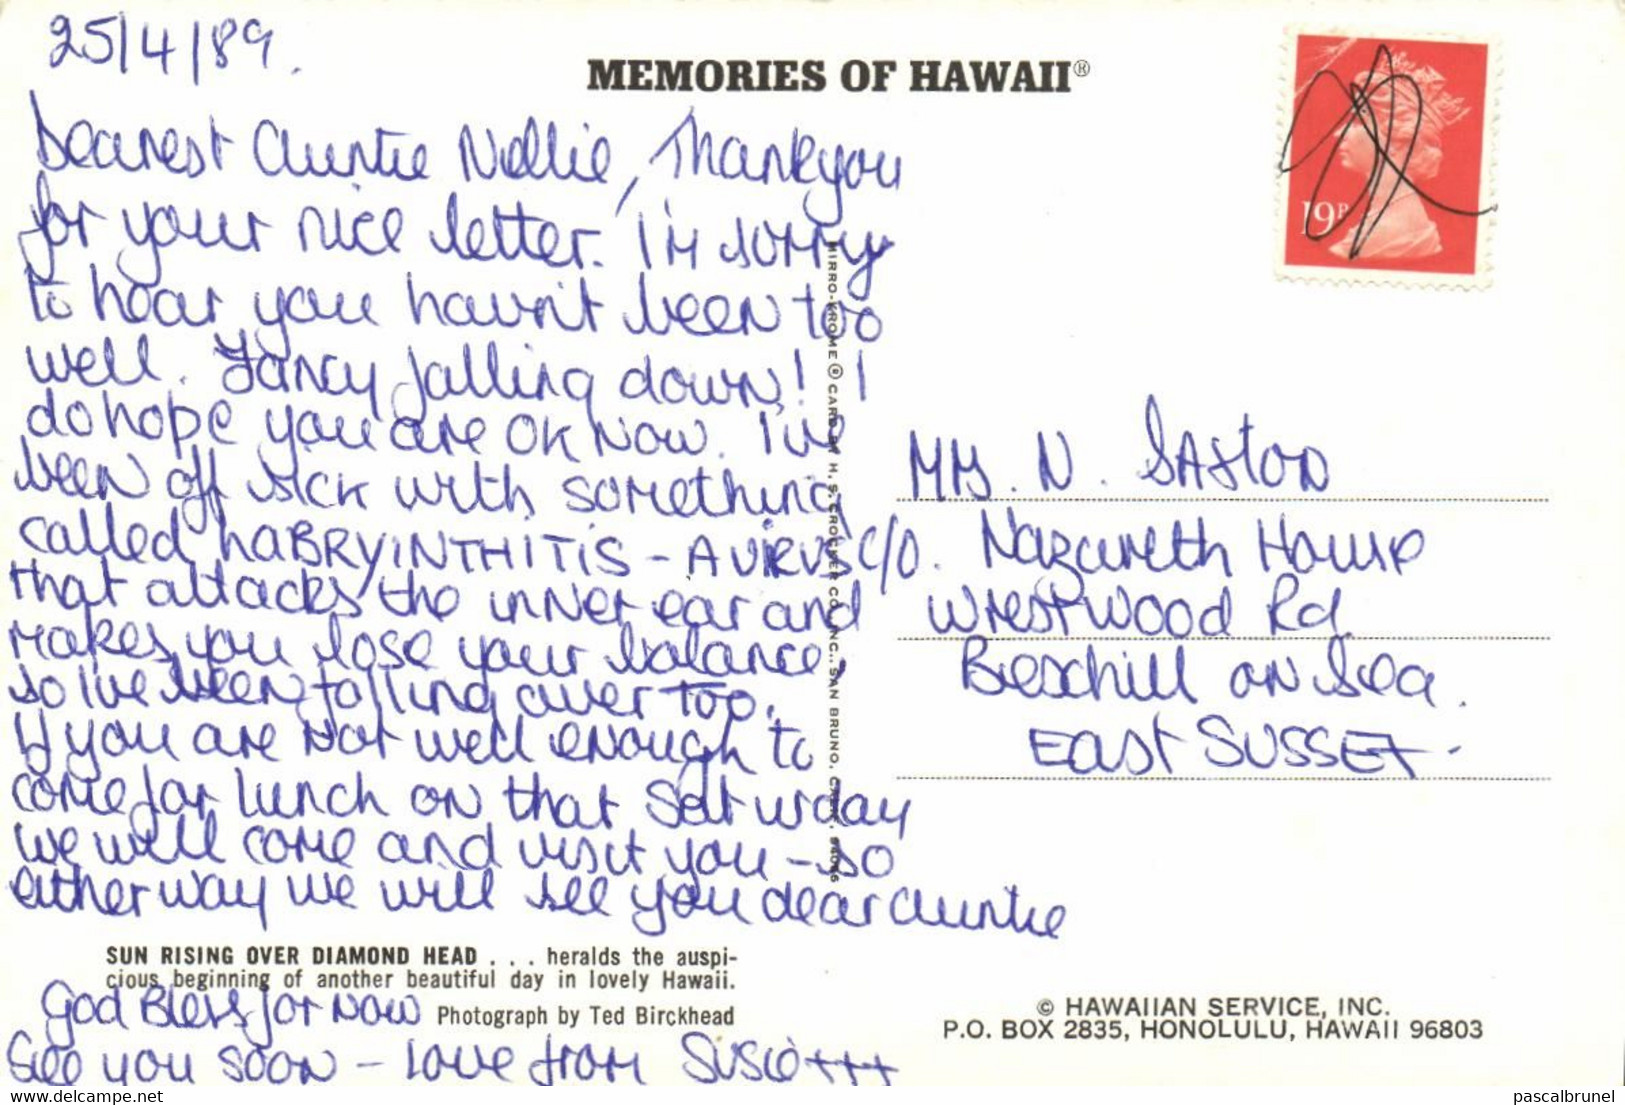 25/4/89.
MEMORIES OF HAWAII®
Dearest Auntie Nellie, Thankyou
for your nice letter. I'm sorry
to hear you havn't been too
well. Fancy falling down! I
do hope you are OK now. I've
been off sick with something
called LABRYINTHITIS - A VIRUS
that attacks the inner ear and
makes you lose your balance,
so I've been falling over TOO.
If you are not well enough to
come for lunch on that Saturday
we will come and visit you - so
either way we will see you dear auntie
God Bless for now
See you soon - love from Susie +++
19P
MIRRO-KROME® CARD BY H. S. CROCKER CO., INC., SAN BRUNO, CALIF. 94066
Mrs. N. Saston
C/O. Nazareth House
Wrestwood Rd
Bexchill on Sea.
EAST SUSSEX.
SUN RISING OVER DIAMOND HEAD . . . heralds the auspi-
cious beginning of another beautiful day in lovely Hawaii.
Photograph by Ted Birckhead
© HAWAIIAN SERVICE, INC.
P.O. BOX 2835, HONOLULU, HAWAII 96803
www.delcampe.net
pascalbrunel